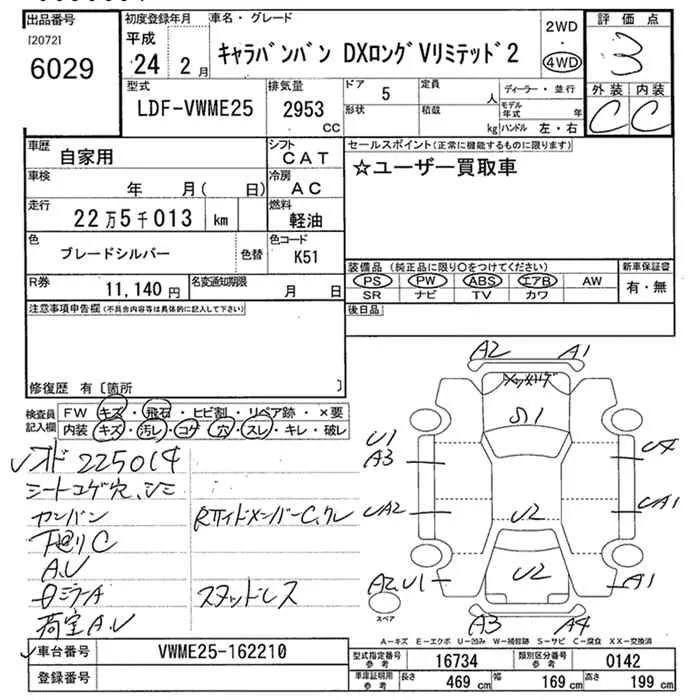 出品番号 初度登録年月 車名・グレード 評価点
[2072] 平成 キャラバンバン DXロング Vリミテッド 2 2WD・4WD 3
6029 24年 2月
型式 排気量 ドア 5 定員 人 ディーラー・並行 外装 内装
LDF-VWME25 2953 CC 形状 積載 kg モデル年式 年 C C
ハンドル 左・右
車歴 自家用 シフト CAT セールスポイント(正常に機能するものに限ります)
☆ユーザー買取車
車検 年 月( 日) 冷房 AC
走行 22万5千013 km 燃料 軽油
色 ブレードシルバー 色替 色コード K51
装備品(純正品に限り○をつけてください) 新車保証書
R券 11,140円 名変通知期限 月 日 PS PW ABS エアB AW 有・無
SR ナビ TV カワ
注意事項申告欄(不具合内容等は具体的に記入して下さい) 後日品
修復歴 有〔箇所 〕
検査員記入欄 FW キズ・飛石・ヒビ割・リペア跡・×要
内装 キズ・汚レ・コゲ・穴・スレ・キレ・破レ
A2 A1
S1
U1
A3
UA2 U2 UA1
U2
A2 U1 A1
スペア
A3 A4
オド 225014
シートコゲ穴、シミ
Rサイドメンバー C、クレ
下廻リ C
A、U
スタッドレス
荷室 A、U
A-キズ E-エクボ U-凹み W-補修跡 S-サビ C-腐食 XX-交換済
車台番号 VWME25-162210
登録番号
型式指定番号 参考 16734 類別区分番号 参考 0142
車庫証明用 参考 長さ 469 cm 幅 169 cm 高さ 199 cm